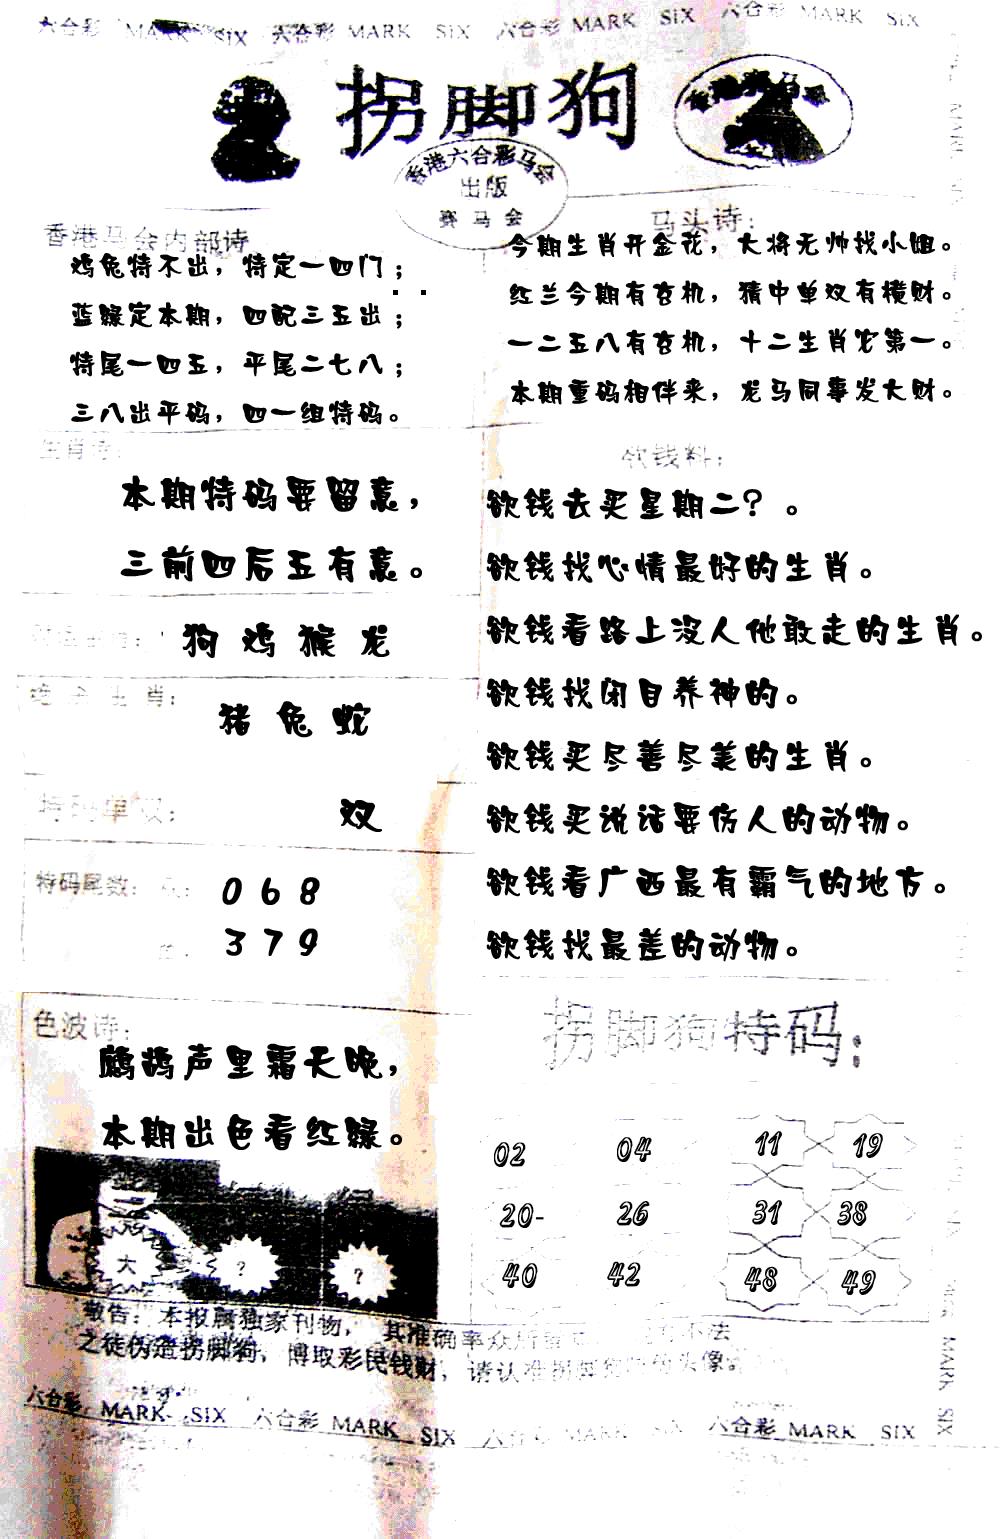 六合彩 MARK SIX 六合彩 MARK SIX 六合彩 MARK SIX 六合彩 MARK SIX
拐脚狗
香港六合彩马会
出版
赛马会
香港马会内部诗
鸡兔特不出，特定一四门；
蓝绿定本期，四配三五出；
特尾一四五，平尾二七八；
三八出平码，四一组特码。
马头诗：
今期生肖开金花，大将无帅找小姐。
红兰今期有玄机，猜中单双有横财。
一二五八有玄机，十二生肖它第一。
本期重码相伴来，龙马同事发大财。
生肖诗：
本期特码要留意，
三前四后五有意。
狗 鸡 猴 龙
绝杀生肖：
猪 兔 蛇
特码单双：
双
特码尾数：
0 6 8
3 7 9
欲钱料：
欲钱去买星期二？。
欲钱找心情最好的生肖。
欲钱看路上没人他敢走的生肖。
欲钱找闭目养神的。
欲钱买尽善尽美的生肖。
欲钱买说话要伤人的动物。
欲钱看广西最有霸气的地方。
欲钱找最差的动物。
色波诗：
鹧鸪声里霜天晚，
本期出色看红绿。
大 ？ ？
拐脚狗特码：
02 04 11 19
20- 26 31 38
40 42 48 49
敬告：本报属独家刊物，其准确率众所
不法
之徒伪造拐脚狗，博取彩民钱财，请认准拐脚狗
头像
六合彩 MARK SIX 六合彩 MARK SIX 六合彩 MARK SIX 六合彩 MARK SIX
MARK SIX